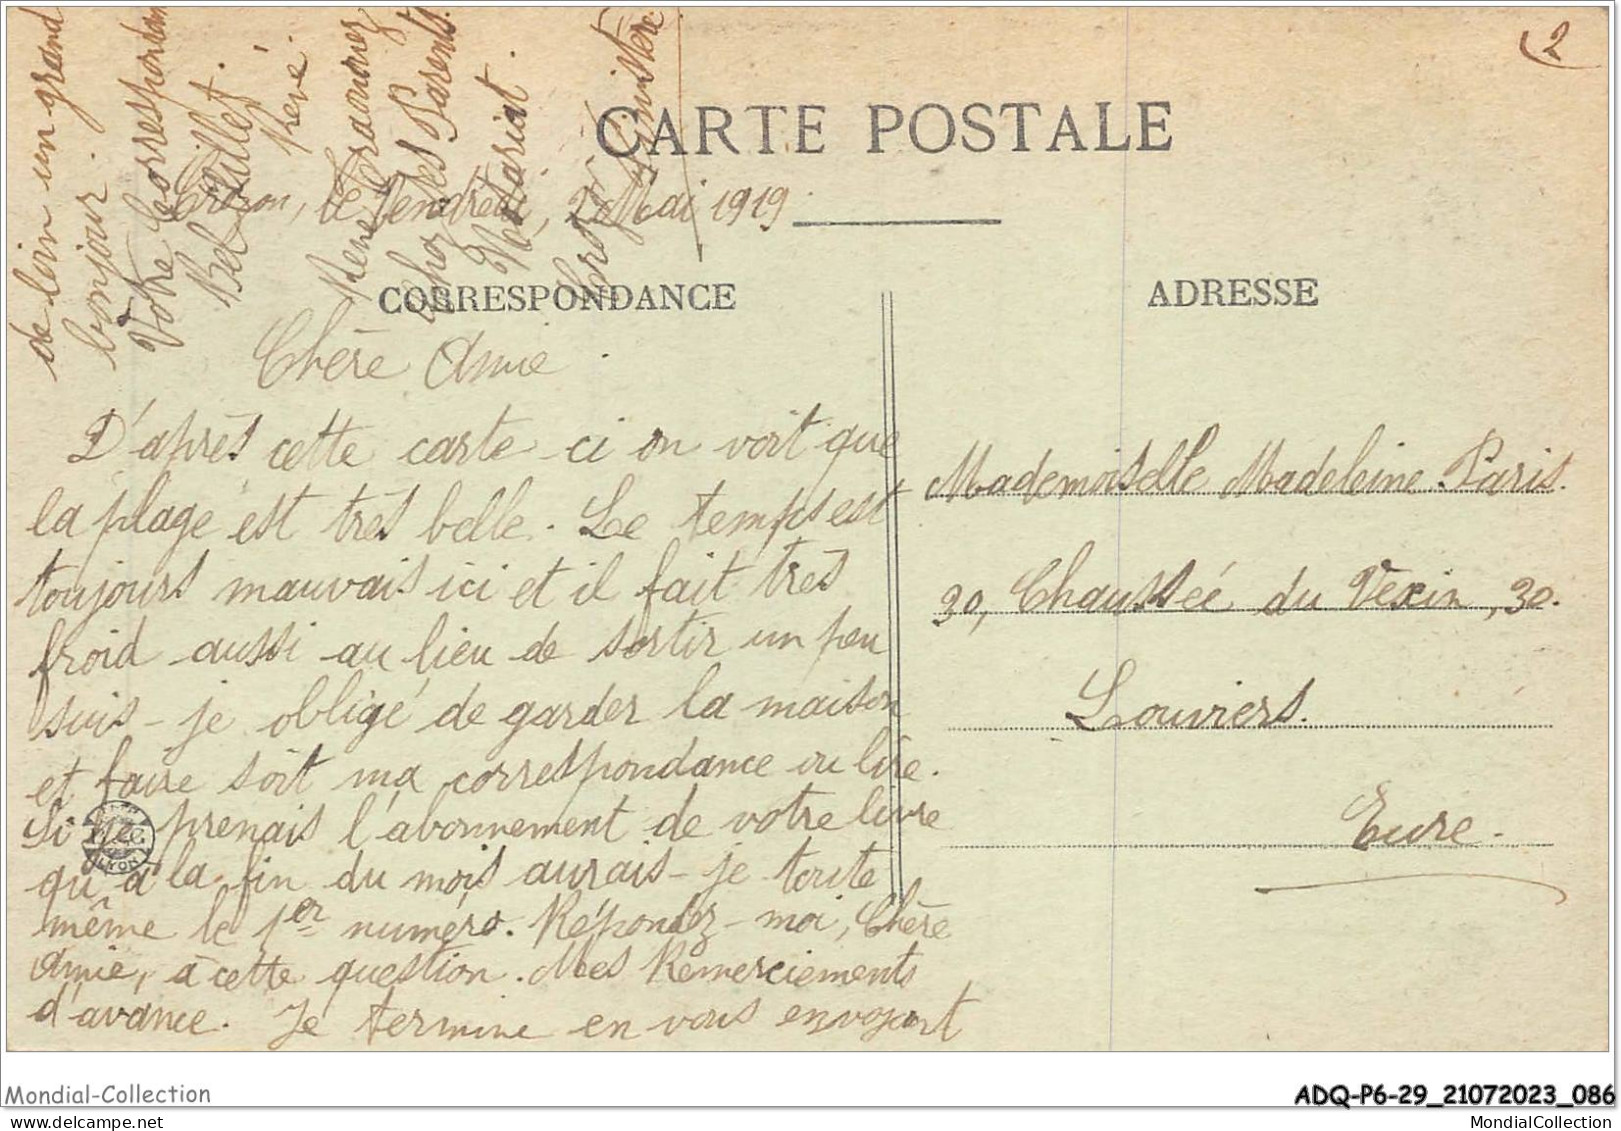 2
CARTE POSTALE
Crozon, le Vendredi, 2 Mai 1919.
CORRESPONDANCE
ADRESSE
Chère Amie
D'après cette carte-ci on voit que
la plage est très belle. Le temps est
toujours mauvais ici et il fait très
froid aussi au lieu de sortir un peu
suis-je obligé de garder la maison
et faire soit ma correspondance ou lire.
Si je prenais l'abonnement de votre livre
qu'à la fin du mois aurais-je toute
même le 1er numéro. Répondez-moi, Chère
Amie, à cette question. Mes Remerciements
d'avance. Je termine en vous envoyant
de loin un grand
bonjour.
Votre Correspondant
René
René
chez ses Parents.
Notariat.
Crozon, Finistère.
Mademoiselle Madeleine Paris.
30, Chaussée du Vexin, 30.
Louviers.
Eure.
LYON
Mondial-Collection
ADQ-P6-29_21072023_086
MondialCollection